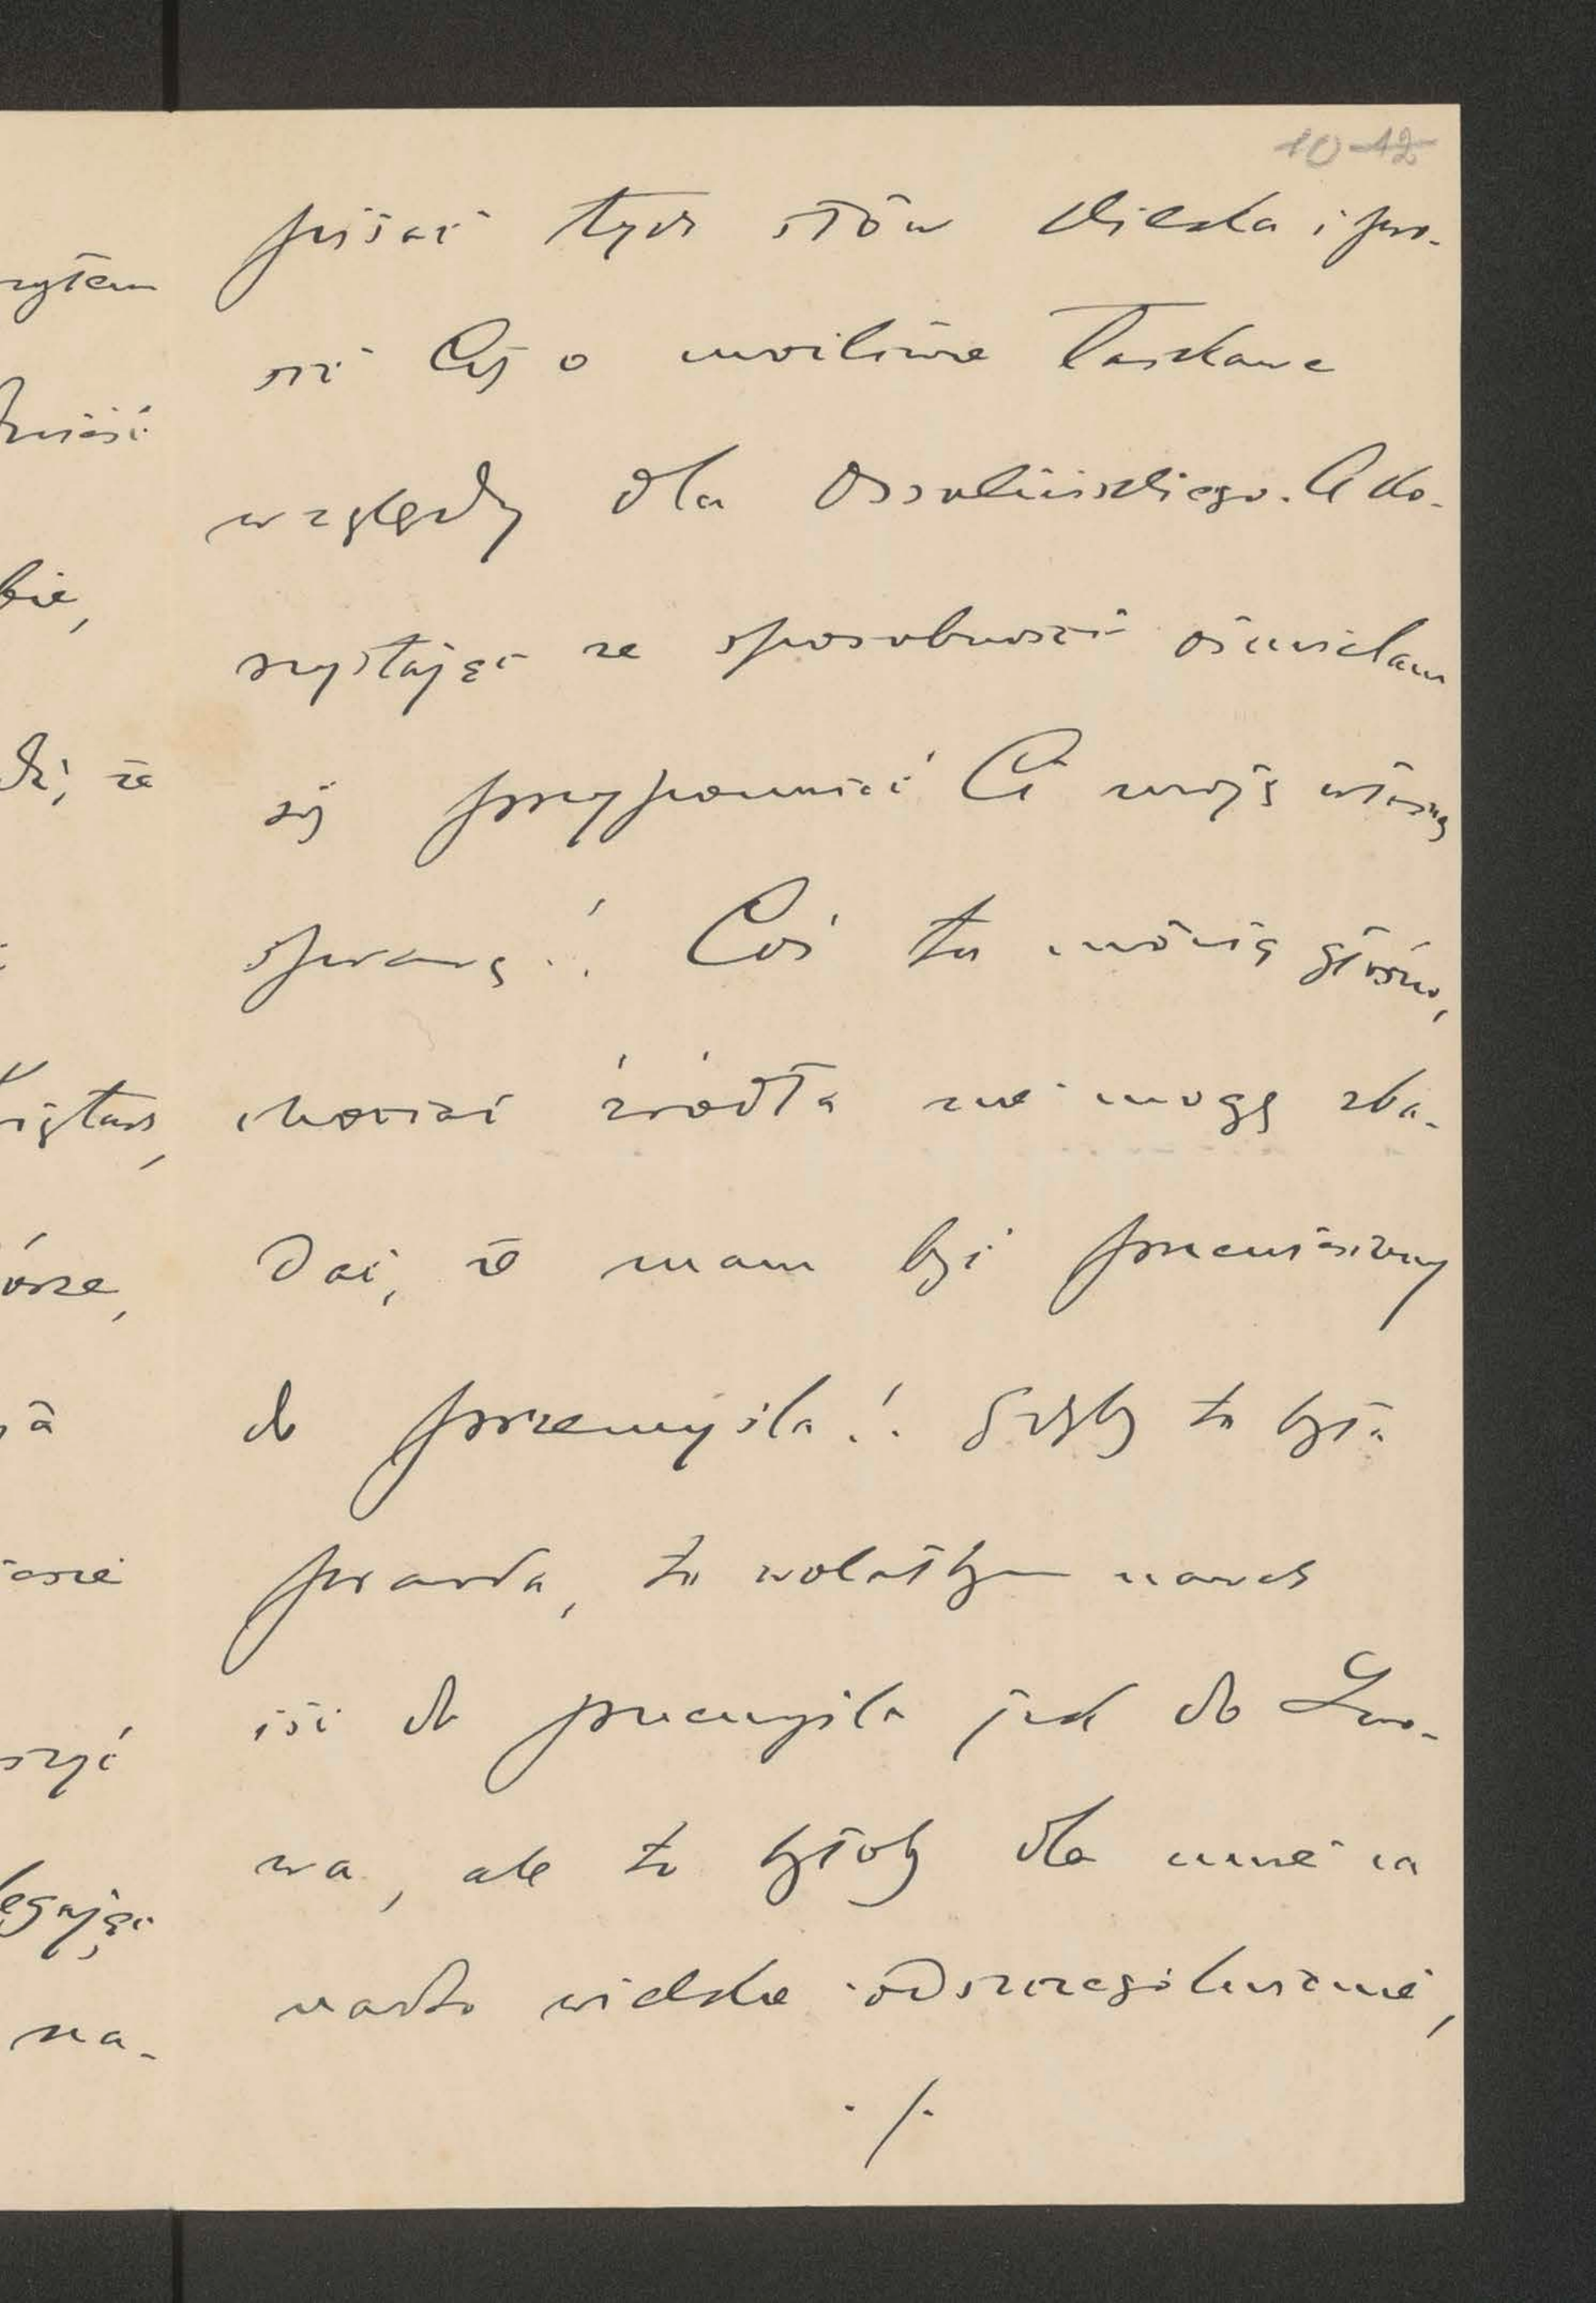 10-12
pisać tych słów kilka i pro-
sić Cię o możliwie łaskawe
względy dla Ossolińskiego. A ko-
rzystając ze sposobności ośmielam
się przypomnieć Ci moją własną
sprawę.! Coś tu mówią głośno,
chociaż źródła nie mogę zba-
dać, że mam być przeniesiony
do Przemyśla.! Gdyby to była
prawda, to wolałbym nawet
iść do Przemyśla jak do Lwo-
wa, ale to byłoby dla mnie za
nadto wielkie odszczególnienie,
./.
rytem
bie,
że
órze,
szyć
legając
na-